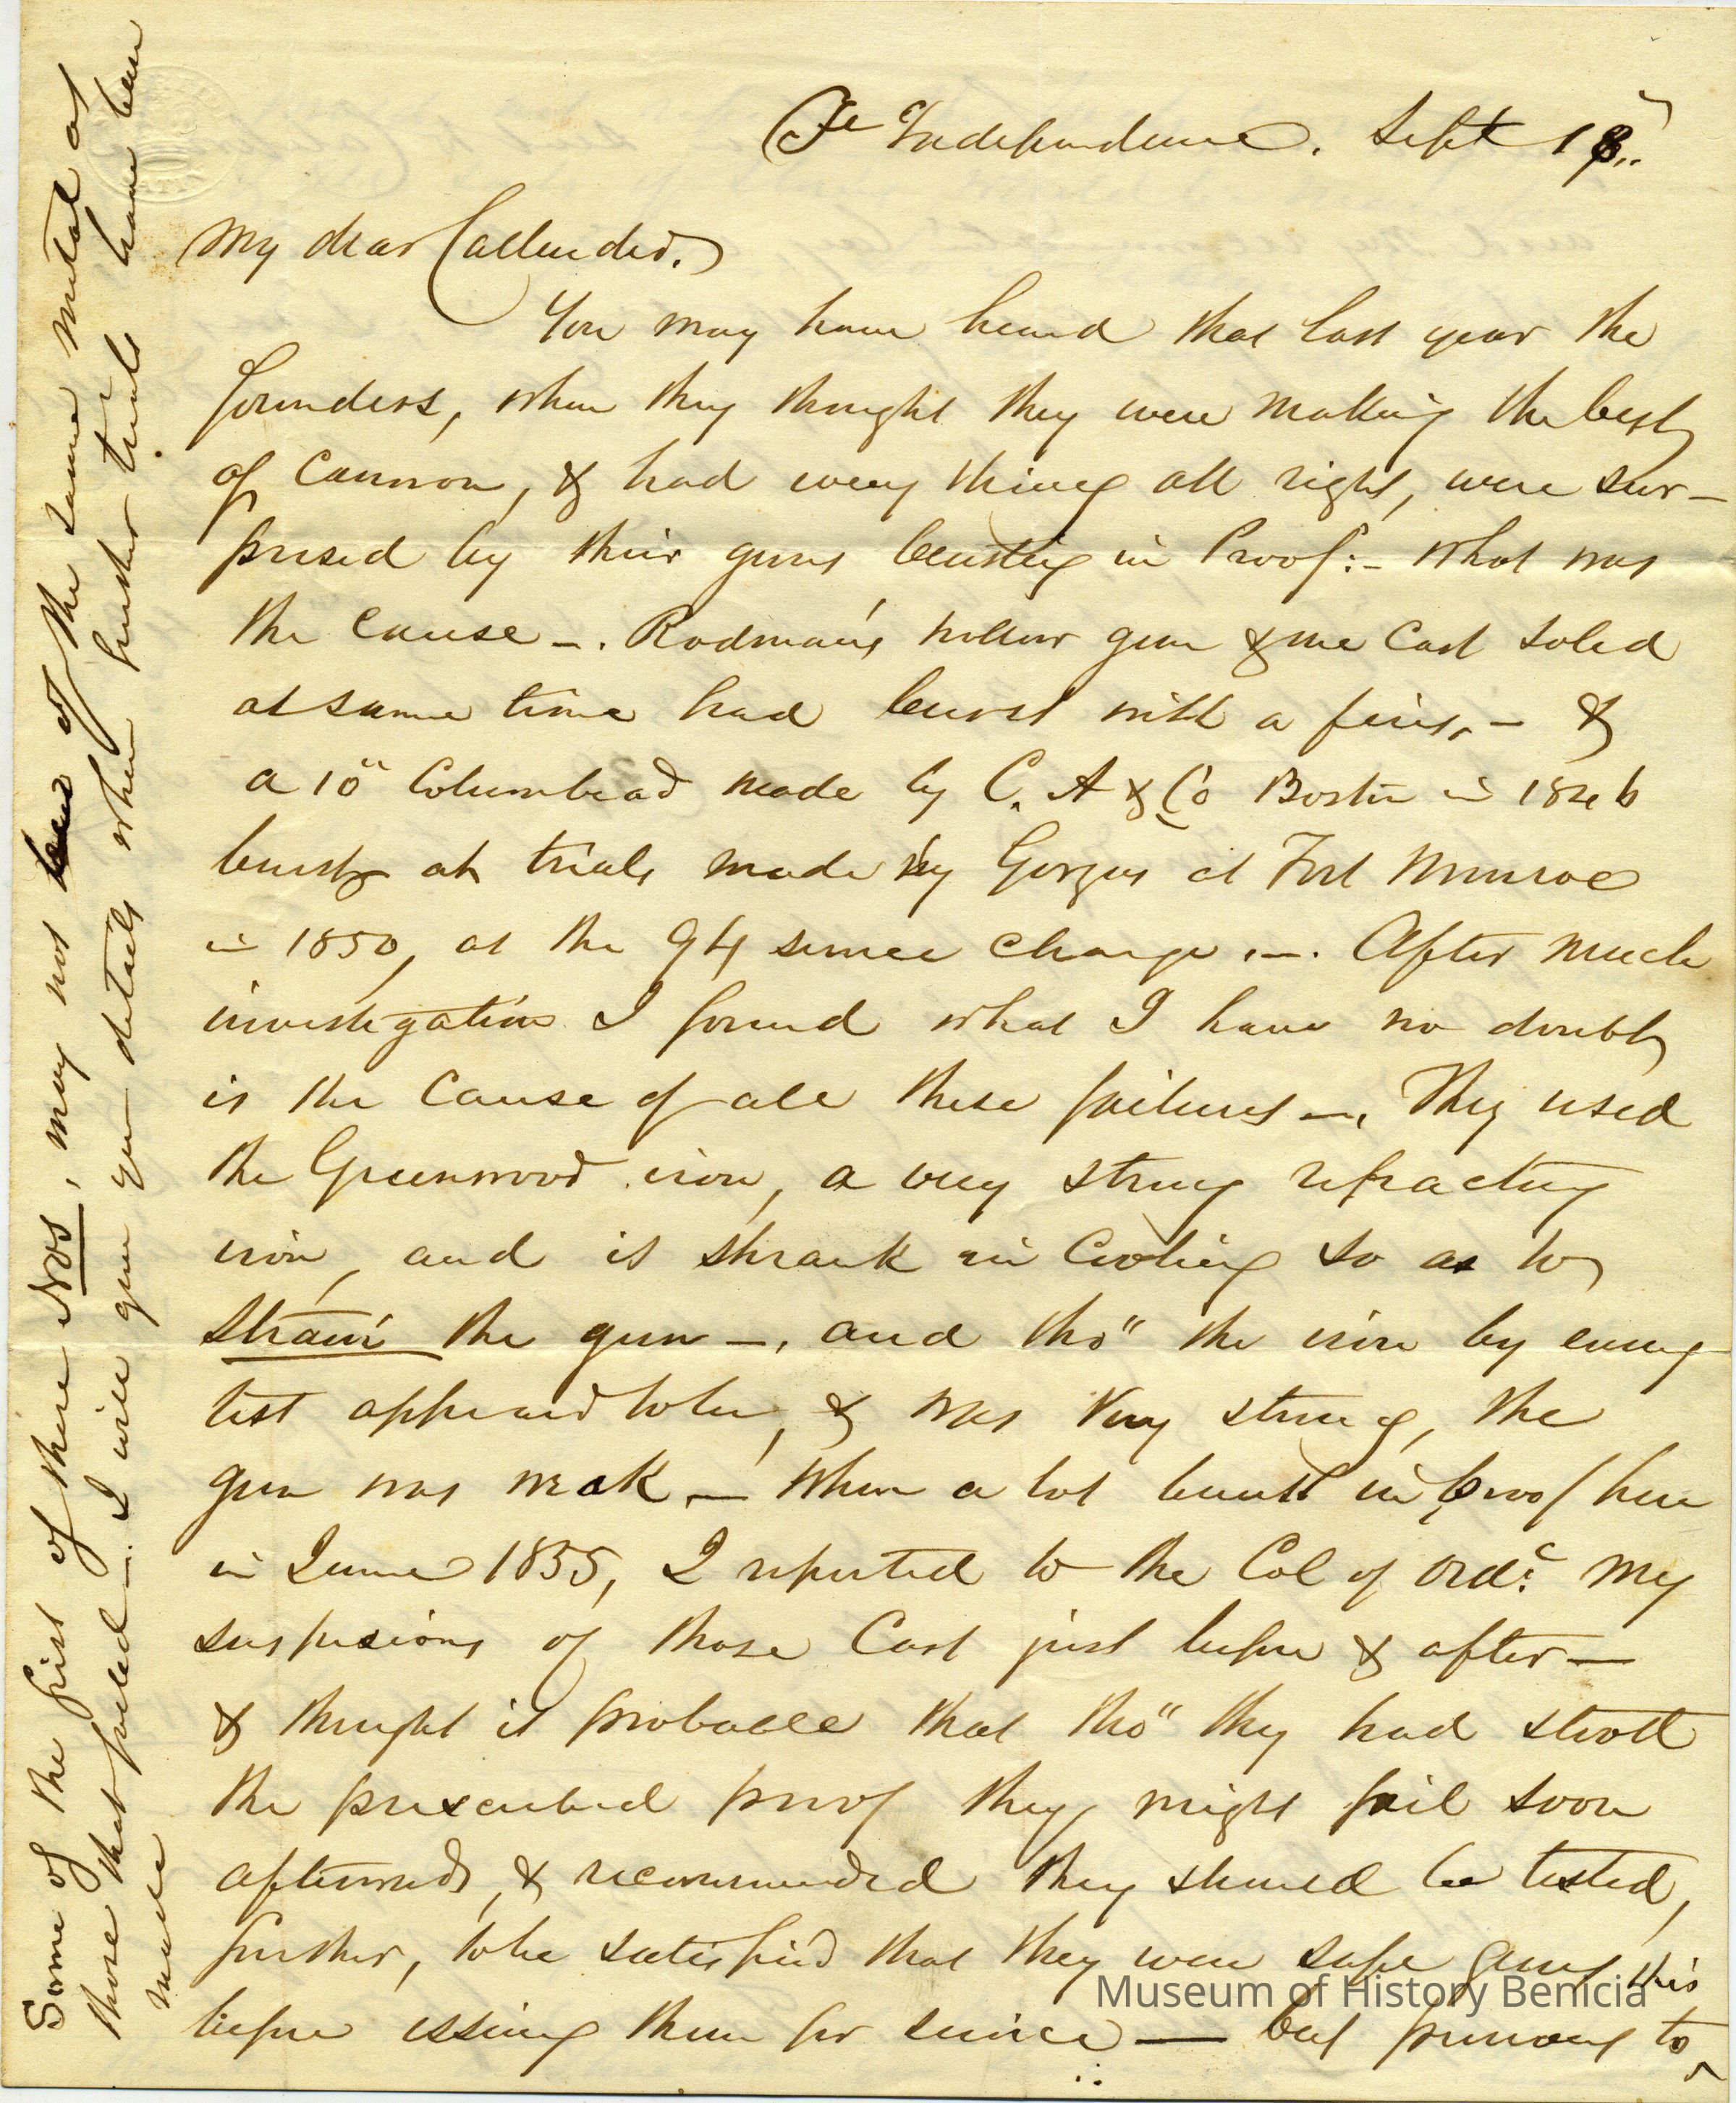 Ft Independence. Sept 18..
My dear Callender.
You may have heard that last year the
founders, when they thought they were making the best
of Cannon, & had every thing all right, were sur-
prised by their guns bursting in Proof:- What was
the Cause -. Rodman's hollow gun & one Cast solid
at same time had burst with a few fires, - &
a 10" Columbiad made by C. A & Co Boston in 1846
burst at trials made by Gorgas at Fort Monroe
in 1850, at the 94 service charge. -. After much
investigation I found what I have no doubt
is the Cause of all these failures -. They used
the Greenwood iron, a very strong refracting
iron, and it shrank in Cooling so as to
strain the gun -. and tho" the iron by every
test appeared to be, & was very strong, the
gun was weak. - When a lot burst in proof here
in June 1855, I reported to the Col of Ord: my
suspicions of those Cast just before & after -
& thought it probable that tho" they had stood
the prescribed proof they might fail soon
afterwards, & recommended they should be tested,
further, to be satisfied that they were safe guns
before issuing them for service - but previous to this
Some of the first of these Nos, may not be of the same metal as
those that failed -. I will give you details when further trials have been
made
Museum of History Benicia